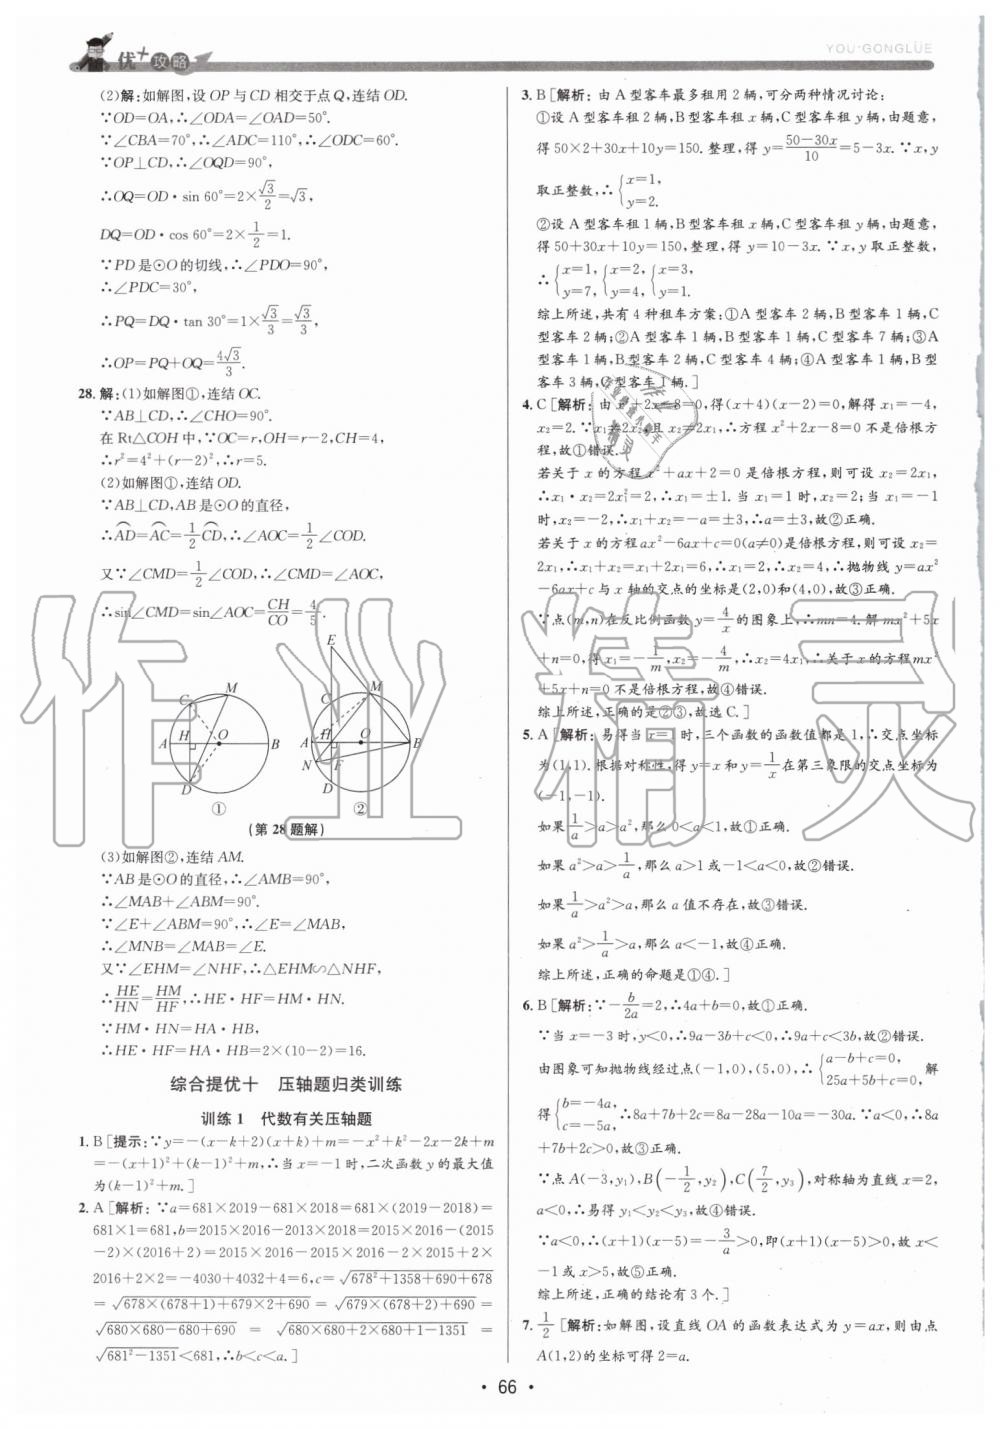 优+攻略
YOU·GONGLÜE
(2)解:如解图,设 OP 与 CD 相交于点 Q,连结 OD.
∵OD=OA,∴∠ODA=∠OAD=50°.
∵∠CBA=70°,∴∠ADC=110°,∴∠ODC=60°.
∵OP⊥CD,∴∠OQD=90°,
∴OQ=OD·sin 60°=2×√3/2=√3,
DQ=OD·cos 60°=2×1/2=1.
∵PD 是⊙O 的切线,∴∠PDO=90°,
∴∠PDC=30°,
∴PQ=DQ·tan 30°=1×√3/3=√3/3,
∴OP=PQ+OQ=4√3/3.
28.解:(1)如解图①,连结 OC.
∵AB⊥CD,∴∠CHO=90°.
在 Rt△COH 中,∵OC=r,OH=r-2,CH=4,
∴r²=4²+(r-2)²,∴r=5.
(2)如解图①,连结 OD.
∵AB⊥CD,AB 是⊙O 的直径,
∴AD⌒=AC⌒=1/2CD⌒,∴∠AOC=1/2∠COD.
又∵∠CMD=1/2∠COD,∴∠CMD=∠AOC,
∴sin∠CMD=sin∠AOC=CH/CO=4/5.
C M A H O B D
①
E M A H O B N F D
②
(第 28 题解)
(3)如解图②,连结 AM.
∵AB 是⊙O 的直径,∴∠AMB=90°,
∴∠MAB+∠ABM=90°.
∵∠E+∠ABM=90°,∴∠E=∠MAB,
∴∠MNB=∠MAB=∠E.
又∵∠EHM=∠NHF,∴△EHM∽△NHF,
∴HE/HN=HM/HF,∴HE·HF=HM·HN.
∵HM·HN=HA·HB,
∴HE·HF=HA·HB=2×(10-2)=16.
综合提优十 压轴题归类训练
训练 1 代数有关压轴题
1. B [提示:∵y=-(x-k+2)(x+k)+m=-x²+k²-2x-2k+m
=-(x+1)²+(k-1)²+m,∴当 x=-1 时,二次函数 y 的最大值
为(k-1)²+m.]
2. A [解析:∵a=681×2019-681×2018=681×(2019-2018)=
681×1=681,b=2015×2016-2013×2018=2015×2016-(2015
-2)×(2016+2)=2015×2016-2015×2016-2×2015+2×
2016+2×2=-4030+4032+4=6,c=√(678²+1358+690+678)
=√(678×(678+1)+679×2+690)=√(679×(678+2)+690)=
√(680×680-680+690)=√(680×680+2×680+1-1351)=
√(681²-1351)<681,∴b<c<a.]
3. B [解析:由 A 型客车最多租用 2 辆,可分两种情况讨论:
①设 A 型客车租 2 辆,B 型客车租 x 辆,C 型客车租 y 辆,由题意,
得 50×2+30x+10y=150.整理,得 y=(50-30x)/10=5-3x.∵x,y
取正整数,∴{x=1, y=2.
②设 A 型客车租 1 辆,B 型客车租 x 辆,C 型客车租 y 辆,由题意,
得 50+30x+10y=150,整理,得 y=10-3x.∵x,y 取正整数,
∴{x=1, y=7, {x=2, y=4, {x=3, y=1.
综上所述,共有 4 种租车方案:①A 型客车 2 辆,B 型客车 1 辆,C
型客车 2 辆;②A 型客车 1 辆,B 型客车 1 辆,C 型客车 7 辆;③A
型客车 1 辆,B 型客车 2 辆,C 型客车 4 辆;④A 型客车 1 辆,B 型
客车 3 辆,C 型客车 1 辆.]
4. C [解析:由 x²+2x-8=0,得(x+4)(x-2)=0,解得 x₁=-4,
x₂=2.∵x₁≠2x₂,且 x₂≠2x₁,∴方程 x²+2x-8=0 不是倍根方
程,故①错误.
若关于 x 的方程 x²+ax+2=0 是倍根方程,则可设 x₂=2x₁,
∴x₁·x₂=2x₁²=2,∴x₁=±1.当 x₁=1 时,x₂=2;当 x₁=-1
时,x₂=-2,∴x₁+x₂=-a=±3,∴a=±3,故②正确.
若关于 x 的方程 ax²-6ax+c=0(a≠0)是倍根方程,则可设 x₂=
2x₁,∴x₁+x₂=x₁+2x₁=6,∴x₁=2,∴x₂=4,∴抛物线 y=ax²
-6ax+c 与 x 轴的交点的坐标是(2,0)和(4,0),故③正确.
∵点(m,n)在反比例函数 y=4/x 的图象上,∴mn=4.解 mx²+5x
+n=0,得 x₁=-1/m,x₂=-4/m,∴x₂=4x₁,∴关于 x 的方程 mx²
+5x+n=0 不是倍根方程,故④错误.
综上所述,正确的是②③,故选 C.]
5. A [解析:易得当 x=1 时,三个函数的函数值都是 1,∴交点坐标
为(1,1).根据对称性,得 y=x 和 y=1/x 在第三象限的交点坐标为
(-1,-1).
如果 1/a>a>a²,那么 0<a<1,故①正确.
如果 a²>a>1/a,那么 a>1 或-1<a<0,故②错误.
如果 1/a>a²>a,那么 a 值不存在,故③错误.
如果 a²>1/a>a,那么 a<-1,故④正确.
综上所述,正确的命题是①④.]
6. B [解析:∵-b/2a=2,∴4a+b=0,故①正确.
∵当 x=-3 时,y<0,∴9a-3b+c<0,∴9a+c<3b,故②错误.
由图象可知抛物线经过点(-1,0),(5,0),∴{a-b+c=0, 25a+5b+c=0, 解
得{b=-4a, c=-5a, ∴8a+7b+2c=8a-28a-10a=-30a.∵a<0,∴8a
+7b+2c>0,故③正确.
∵点 A(-3,y₁),B(-1/2,y₂),C(7/2,y₃),对称轴为直线 x=2,
a<0,∴易得 y₁<y₂<y₃,故④错误.
∵a<0,∴(x+1)(x-5)=-3/a>0,即(x+1)(x-5)>0,故 x<
-1 或 x>5,故⑤正确.
综上所述,正确的结论有 3 个.]
7. 1/2 [解析:如解图,设直线 OA 的函数表达式为 y=ax,则由点
A(1,2)的坐标可得 2=a.
·66·
作业精灵